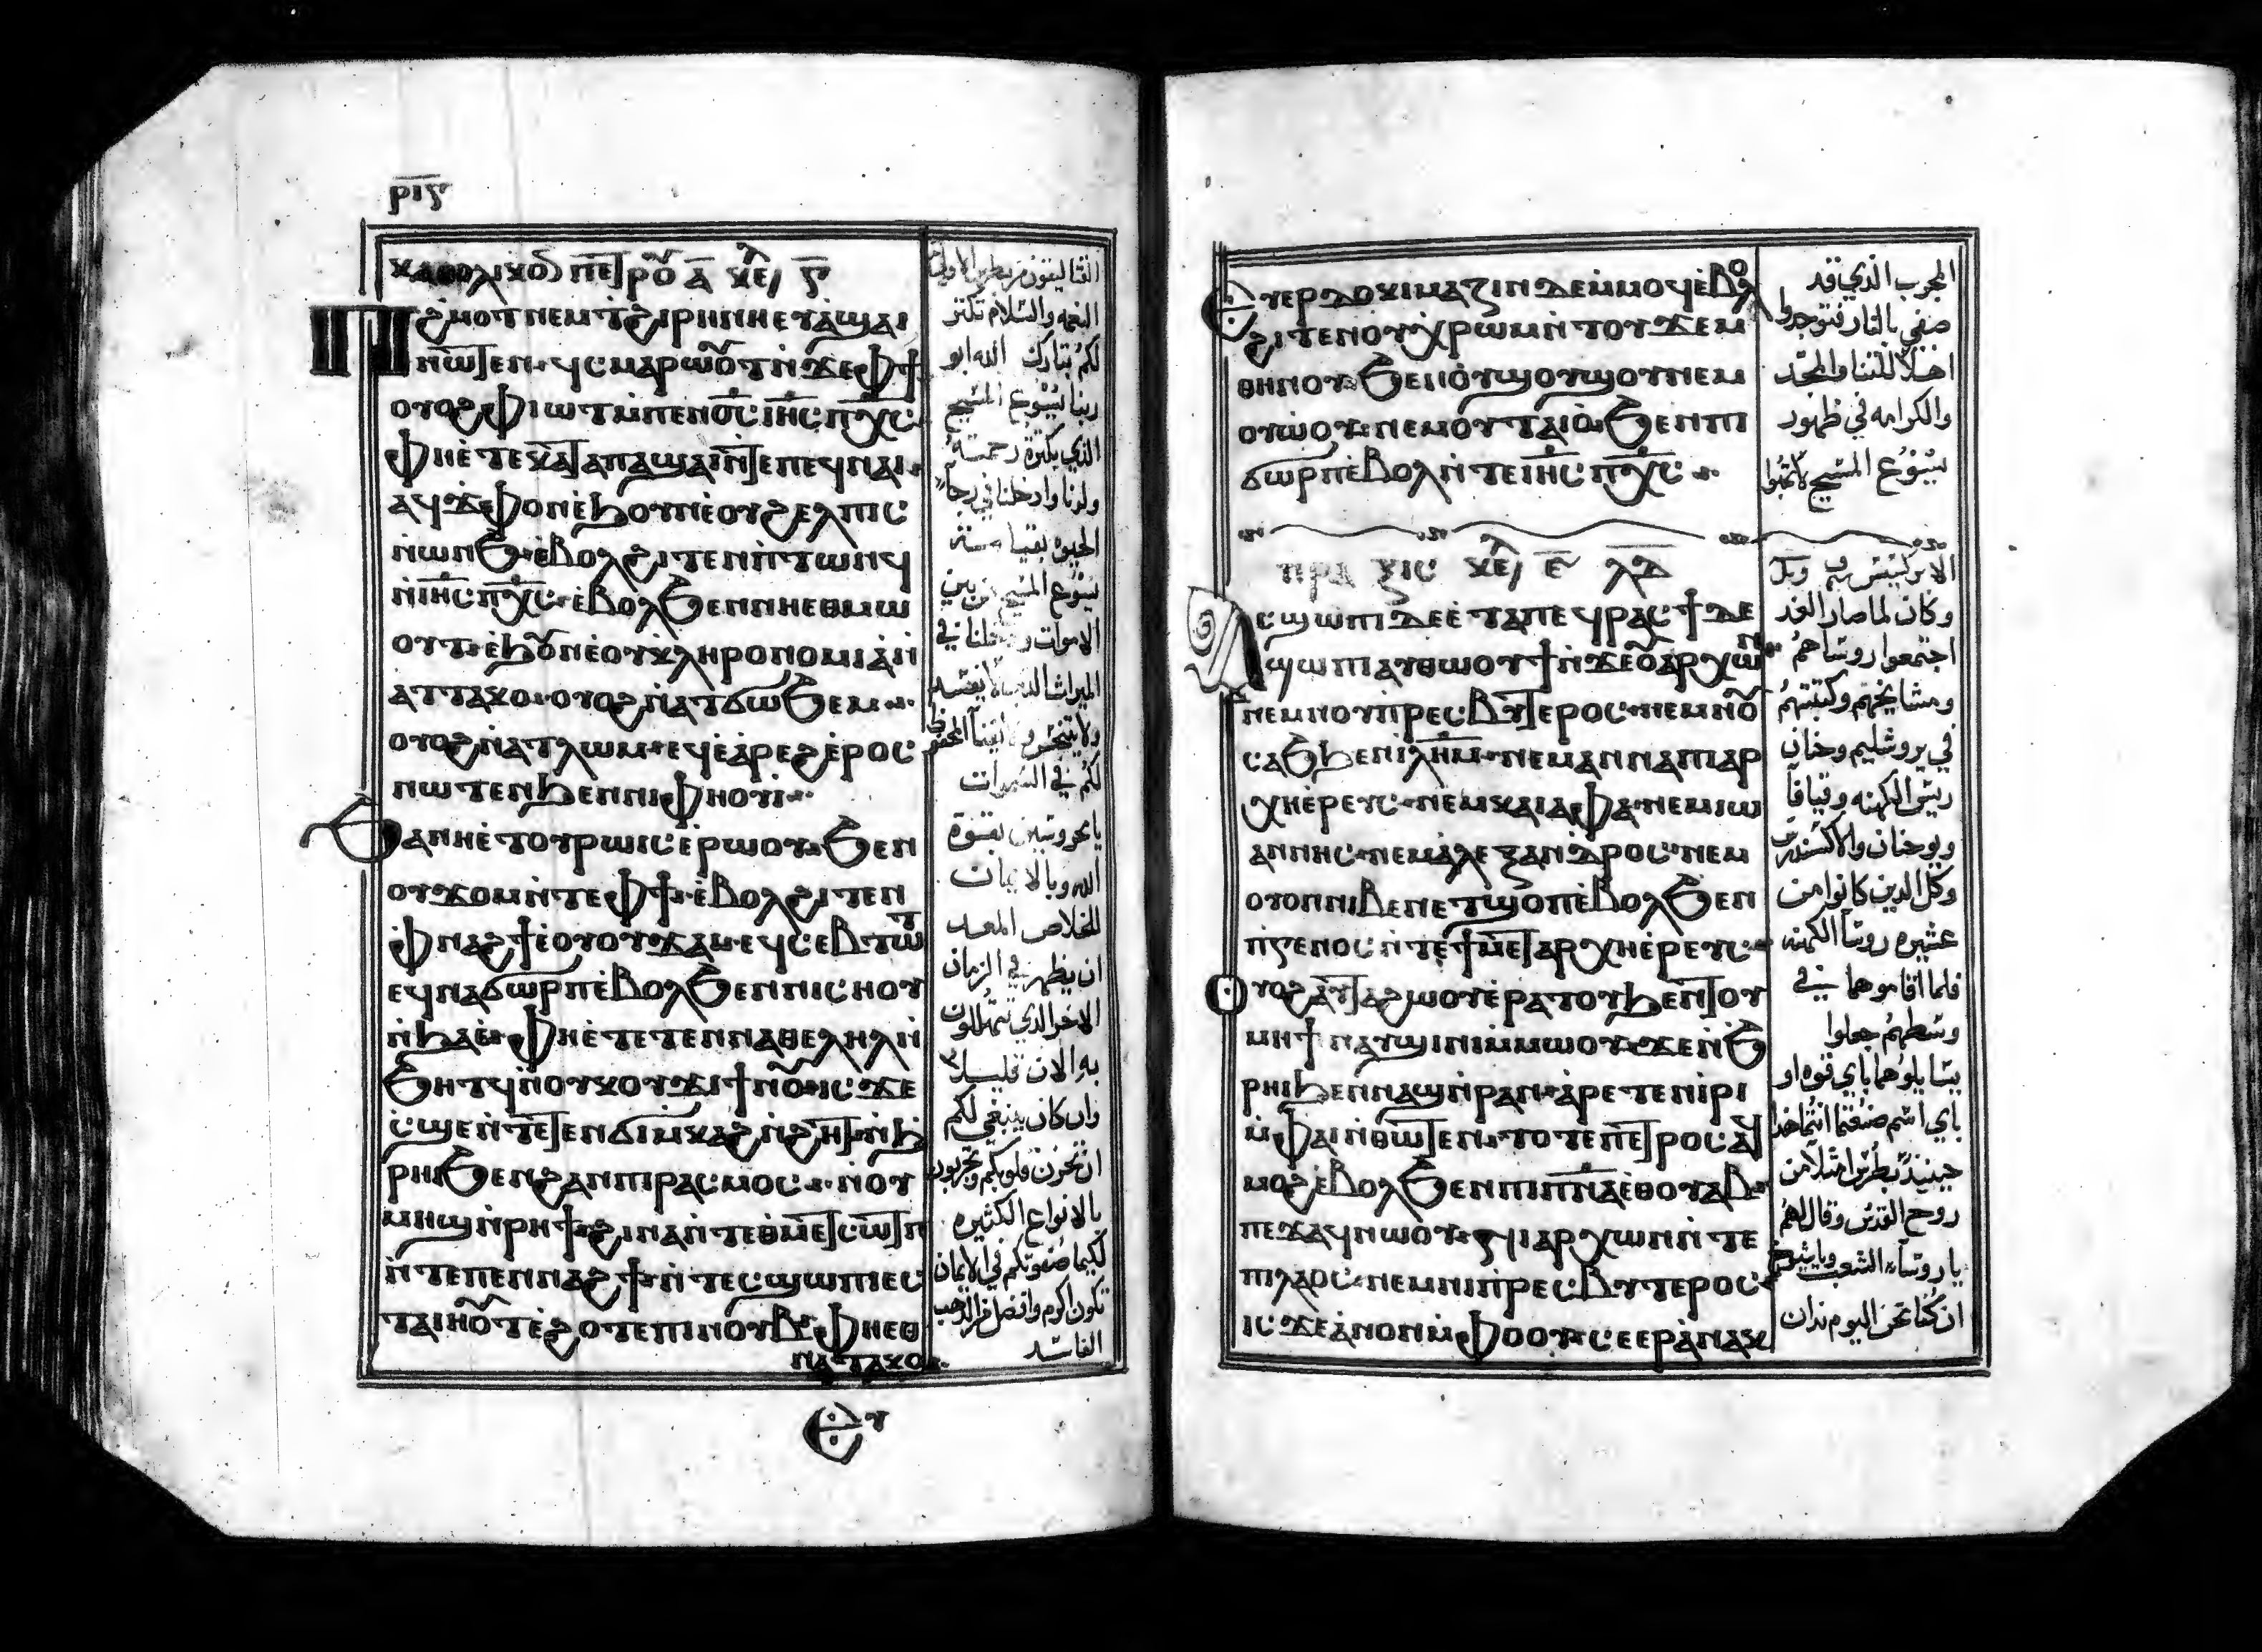 ⲣⲓⲋ
ⲕⲁⲑⲟⲗⲓⲕⲟⲛ ⲡⲉⲧⲣⲟ ⲁ̅ ⲕⲉ ⲋ̅
Ⲡϩⲙⲟⲧ ⲛⲉⲙ ⲧϩⲓⲣⲏⲛⲏ ⲉⲩⲁ̀ϣⲁⲓ
ⲛⲱⲧⲉⲛ ϥⲥⲙⲁⲣⲱⲟⲩⲧ ⲛ̀ϫⲉⲫϯ
ⲟⲩⲟϩ ⲫⲓⲱⲧ ⲙ̀ⲡⲉⲛⲟ̅ⲥ̅ ⲓⲏ̅ⲥ̅ ⲡⲭ̅ⲥ̅
ⲫⲏⲉ̀ⲧⲉ ⲕⲁⲧⲁ ⲡⲁϣⲁⲓ ⲛ̀ⲧⲉ ⲡⲉϥⲛⲁⲓ
ⲁϥϫⲫⲟⲛ ⲉ̀ϧⲟⲩⲛ ⲉ̀ⲟⲩϩⲉⲗⲡⲓⲥ
ⲛ̀ⲱⲛϧ ⲉ̀ⲃⲟⲗϩⲓⲧⲉⲛ ⲡ̀ⲧⲱⲛϥ
ⲛ̀ⲓⲏ̅ⲥ̅ ⲡⲭ̅ⲥ̅ ⲉ̀ⲃⲟⲗϧⲉⲛ ⲛⲏⲉⲑⲙⲱ
ⲟⲩⲧ ⲉ̀ϧⲟⲩⲛ ⲉ̀ⲟⲩⲕⲗⲏⲣⲟⲛⲟⲙⲓⲁ ⲛ̀
ⲁⲧⲧⲁⲕⲟ ⲟⲩⲟϩ ⲛ̀ⲁⲧϭⲱϧⲉⲙ
ⲟⲩⲟϩ ⲛ̀ⲁⲧⲗⲱⲙ ⲉⲩⲉ̀ⲁ̀ⲣⲉϩ ⲉ̀ⲣⲟⲥ
ⲛⲱⲧⲉⲛ ϧⲉⲛ ⲛⲓⲫⲏⲟⲩⲓ̀
Ϧⲁ ⲛⲏⲉ̀ⲧⲟⲩⲣⲱⲓⲥ ⲉ̀ⲣⲱⲟⲩ ϧⲉⲛ
ⲟⲩϫⲟⲙ ⲛ̀ⲧⲉ ⲫϯ ⲉ̀ⲃⲟⲗϩⲓⲧⲉⲛ
ⲫⲛⲁϩϯ ⲉ̀ⲟⲩⲟⲩϫⲁⲓ ⲉϥⲥⲉⲃⲧⲱⲧ
ⲉϥⲛⲁϭⲱⲣⲡ ⲉ̀ⲃⲟⲗϧⲉⲛ ⲡⲓⲥⲛⲟⲩ
ⲛ̀ϧⲁⲉ̀ ⲫⲏⲉ̀ⲧⲉⲧⲉⲛⲛⲁⲑⲉⲗⲏⲗ ⲛ̀
ϧⲏⲧϥ ⲛ̀ⲟⲩⲕⲟⲩϫⲓ ϯⲛⲟⲩ ⲓⲥϫⲉ
ⲥ̀ϣⲉ ⲛ̀ⲧⲉⲧⲉⲛϭⲓ ⲙ̀ⲕⲁϩ ⲛ̀ϩⲏⲧ ⲛ̀ϧ
ⲣⲏⲓ ϧⲉⲛ ϩⲁⲛⲡⲓⲣⲁⲥⲙⲟⲥ ⲛ̀ⲟⲩ
ⲙⲏϣ ⲛ̀ⲣⲏϯ ϩⲓⲛⲁ ⲛ̀ⲧⲉ ⲑⲙⲉⲧⲥⲱⲧⲡ
ⲛ̀ⲧⲉ ⲡⲉⲛⲛⲁϩϯ ⲛ̀ⲧⲉⲥϣⲱⲡⲓ ⲉⲥ
ⲧⲁⲓⲏⲟⲩⲧ ⲉ̀ϩⲟⲧⲉ ⲡⲓⲛⲟⲩⲃ ⲫⲏⲉⲑ
ⲛⲁⲧⲁⲕⲟ
Ⲉⲩ
النعمه والسلام تكثر
لكم تبارك الله ابو
ربنا يسوع المسيح
الذي بكثرة رحمته
ولدنا وادخلنا في رجاء
الحيوه بقيامته
يسوع المسيح من بين
لكم في السموات
يا محروسين بقوة
الله وبالايمان
للخلاص المعد
ان يظهر في الزمان
الاخر الذي تتهللون
به الان قليلا
وان كان ينبغي لكم
ان تحزن قلوبكم وتجربون
بالانواع الكثيره
لكيما صفوتكم في الايمان
تكون اكرم وافضل من الذهب
الفاسد
Ⲉⲩⲉⲣⲇⲟⲕⲓⲙⲁⲍⲓⲛ ⲇⲉ ⲙ̀ⲙⲟϥ ⲉ̀ⲃⲟⲗ
ϩⲓⲧⲉⲛ ⲟⲩⲭ̀ⲣⲱⲙ ⲛ̀ⲧⲟⲩϫⲉⲙ
ⲑⲏⲛⲟⲩ ϧⲉⲛ ⲟ̀ⲩϣⲟⲩϣⲟⲩ ⲛⲉⲙ
ⲟⲩⲱ̀ⲟⲩ ⲛⲉⲙ ⲟ̀ⲩⲧⲁⲓⲟ̀ ϧⲉⲛ ⲡⲓ
ϭⲱⲣⲡ ⲉ̀ⲃⲟⲗ ⲛ̀ⲧⲉ ⲓⲏ̅ⲥ̅ ⲡⲭ̅ⲥ̅
ⲡⲣⲁⲝⲓⲥ ⲕⲉ ⲉ̅ ⲗ̅ⲇ̅
Ⲁⲥϣⲱⲡⲓ ⲇⲉ ⲉ̀ⲧⲁ ⲡⲉϥⲣⲁⲥϯ ⲇⲉ
ϣⲱⲡⲓ ⲁⲩⲑⲱⲟⲩϯ ⲛ̀ϫⲉ ⲟⲩⲁⲣⲭⲱⲛ
ⲛⲉⲙ ⲛⲟⲩⲡ̀ⲣⲉⲥⲃⲩⲧⲉⲣⲟⲥ ⲛⲉⲙ ⲛⲟⲩ
ⲥⲁϧ ϧⲉⲛ ⲓ̅ⲗ̅ⲏ̅ⲙ̅ ⲛⲉⲙ ⲁⲛⲛⲁ ⲡⲓⲁⲣ
ⲭⲏⲉ̀ⲣⲉⲩⲥ ⲛⲉⲙ ⲕⲁⲓⲁⲫⲁ ⲛⲉⲙ ⲓⲱ
ⲁⲛⲛⲏⲥ ⲛⲉⲙ ⲁ̀ⲗⲉⲝⲁⲛⲇⲣⲟⲥ ⲛⲉⲙ
ⲟⲩⲟⲛ ⲛⲓⲃⲉⲛ ⲉⲧϣⲟⲡ ⲉ̀ⲃⲟⲗϧⲉⲛ
ⲡ̀ⲅⲉⲛⲟⲥ ⲛ̀ⲧⲉ ϯⲙⲉⲧⲁⲣⲭⲏⲉ̀ⲣⲉⲩⲥ
Ⲟⲩⲟϩ ⲁⲩⲧⲁϩⲱⲟⲩ ⲉ̀ⲣⲁⲧⲟⲩ ϧⲉⲛ ⲧⲟⲩ
ⲙⲏϯ ⲛⲁⲩϣⲓⲛⲓ ⲙ̀ⲙⲱⲟⲩ ϫⲉ ⲛ̀ϧ
ⲣⲏⲓ ϧⲉⲛ ⲛⲁϣ ⲛ̀ⲣⲁⲛ ⲁ̀ⲣⲉⲧⲉⲛⲓ̀ⲣⲓ
ⲙ̀ⲫⲁⲓ ⲛ̀ⲑⲱⲧⲉⲛ ⲧⲟⲧⲉ ⲡⲉⲧⲣⲟⲥ ⲁϥ
ⲙⲟϩ ⲉ̀ⲃⲟⲗϧⲉⲛ ⲡⲓⲡ̅ⲛ̅ⲁ̅ ⲉ̀ⲑⲟⲩⲁⲃ
ⲡⲉϫⲁϥ ⲛⲱⲟ̀ⲩ ϫⲉ ⲛⲓⲁⲣⲭⲱⲛ ⲛ̀ⲧⲉ
ⲡⲓⲗⲁⲟⲥ ⲛⲉⲙ ⲛⲓⲡ̀ⲣⲉⲥⲃⲩⲧⲉⲣⲟⲥ
ⲓⲥϫⲉ ⲁ̀ⲛⲟⲛ ⲙ̀ⲫⲟⲟⲩ ⲥⲉⲉⲣⲁ̀ⲛⲁⲕ
المجرب الذي قد
صفي بالنار فتوجدوا
اهلا للثنا والمجد
والكرامه في ظهور
يسوع المسيح
وكان لما صار الغد
اجتمعوا روساهم
ومشايخهم وكتبتهم
في يروشليم وحنان
ريس الكهنه وقيافا
ويوحنان والاكسندرس
وكل الذين كانوا من
عشيره روسا الكهنه
فلما اقاموهما في
وسطهم جعلوا
يسايلوهما باي قوه او
باي اسم صنعتما انتما هذا
حينيذ بطرس امتلا من
روح القدس وقال لهم
يا روسا الشعب ويا شيوخ
ان كنا نحن اليوم ندان